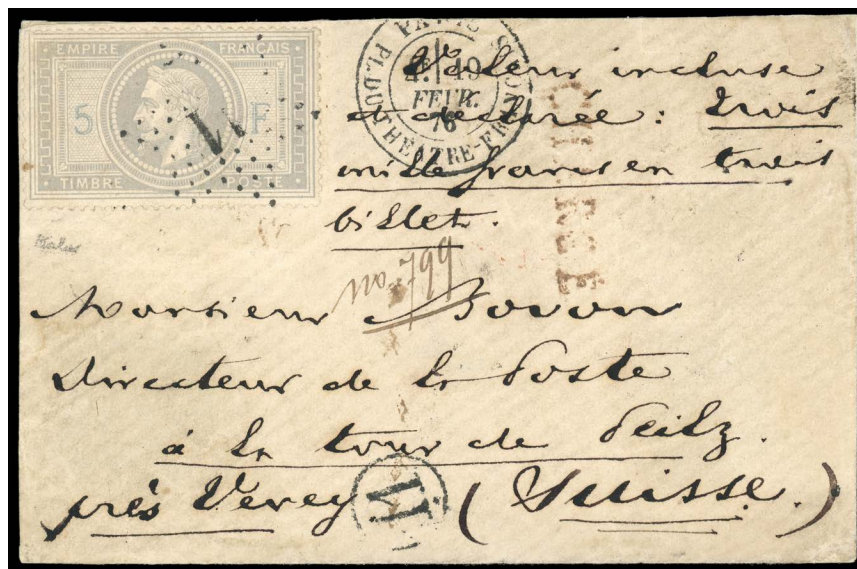 EMPIRE FRANÇAIS
5 F
TIMBRE POSTE
1
PARIS
PL. DU THÉATRE-FR
19
FEVR.
76
CHARGÉ
Valeur incluse
et déclarée : Trois
mille francs en trois
billet.
no. 799
Monsieur Bovon
Directeur de la Poste
à la tour de Peilz.
près Vevey (Suisse.)